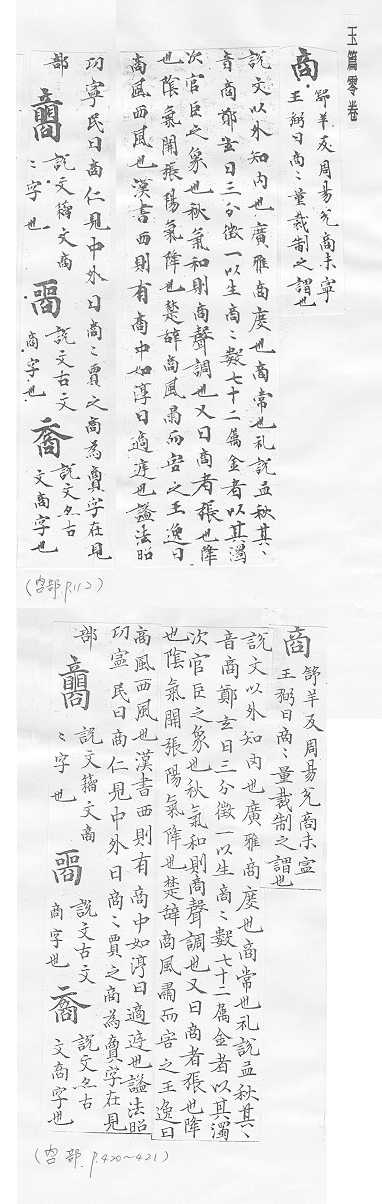 玉篇零卷
商
舒羊反周易兊商未寧
王弼曰商〻量裁制之謂也
說文以外知內也廣雅商度也商常也礼說孟秋其〻
音商鄭玄曰三分徵一以生商〻數七十二属金者以其濁
次官臣之象也秋氣和則商聲調也又曰商者張也降
也陰氣開張陽氣降也楚辭商風肅而害之王逸曰
商風西風也漢書西則有商中如淳曰適遮也謚法昭
功寧民曰商仁見中外曰商〻賈之商為賷字在見
部
說文籀文商
〻字也
說文古文
商字也
說文尒古
文商字也
(㕯部 P.112)
商
舒羊反周昜兊商未寍
王弼曰商〻量裁制之謂也
說文以外知內也廣雅商度也商常也礼說孟秋其〻
音商鄭玄曰三分徵一以生商〻數七十二属金者以其濁
次官臣之象也秋氣和則商聲調也又曰商者張也降
也陰氣開張陽氣降也楚辭商風肅而害之王逸曰
商風西風也漢書西則有商中如淳曰適遮也謚法昭
功寍民曰商仁見中外曰商〻賈之商為賷字在見
部
說文籀文商
〻字也
說文古文
商字也
說文尒古
文商字也
(㕯部 P.420~421)